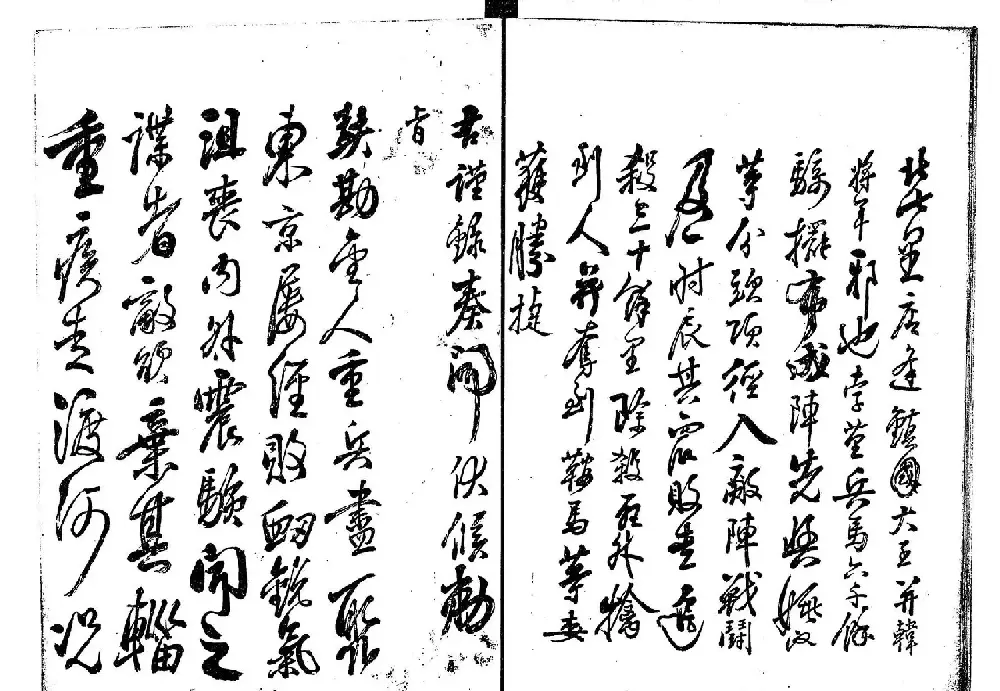 北七里店逢鎮國大王并韓
將軍邪也孛堇兵馬六千餘
騎擺布成陣先與姚政
等分頭項徑入敵陣戰鬪
及一时辰其眾敗走追
殺三十餘里除殺死外擒
到人并奪到鞍馬等委
獲勝捷
右謹錄奏聞伏候勅
旨
契勘金人重兵盡聚
東京屢經敗衄銳氣
沮喪內外震駭聞之
諜者敵欲棄其輜
重疾走渡河況